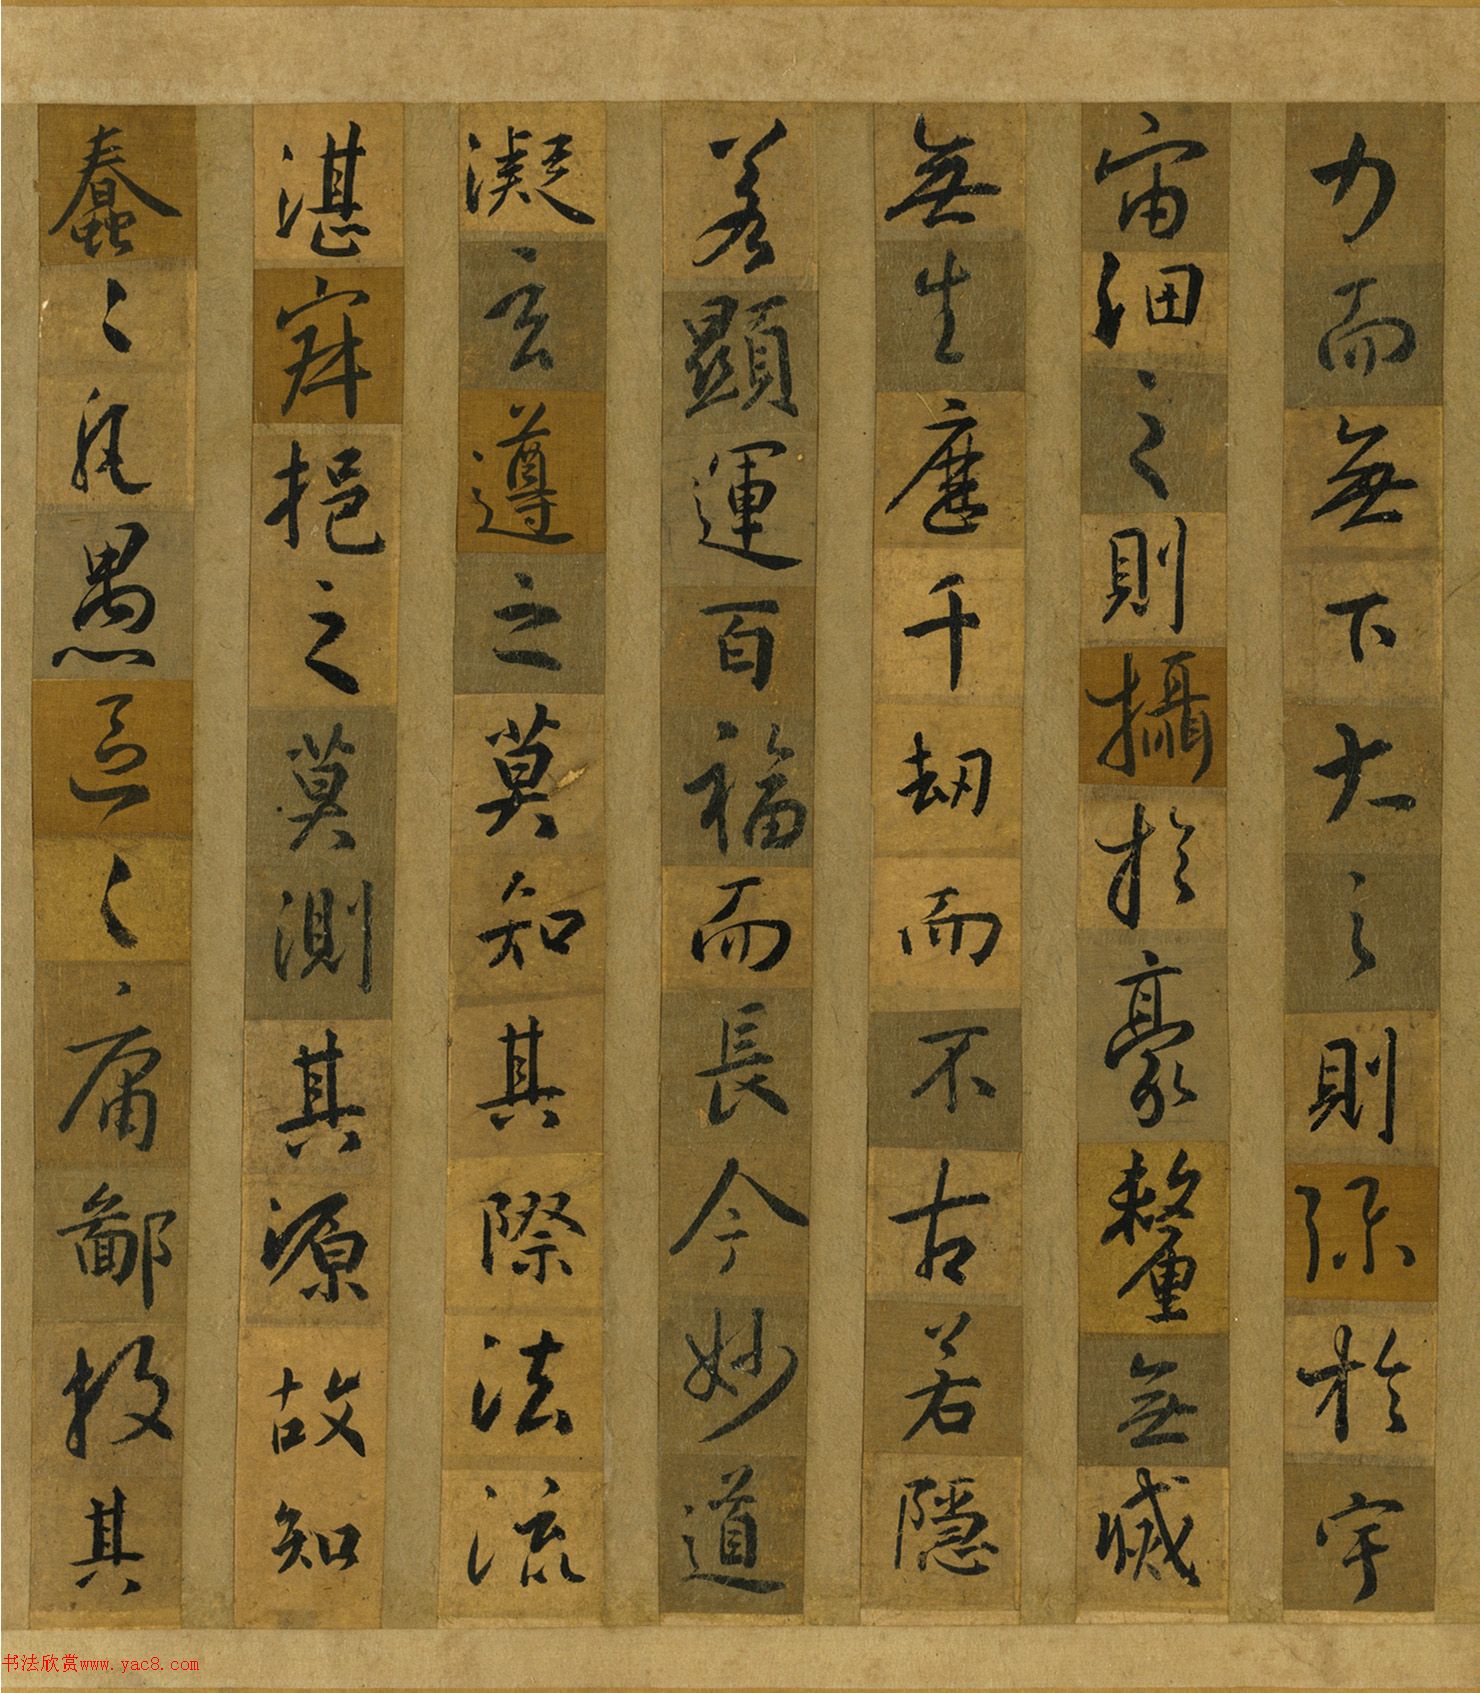 力而無下大之則弥於宇
宙細之則攝於豪釐無滅
無生歷千劫而不古若隱
若顯運百福而長今妙道
凝玄遵之莫知其際法流
湛寂挹之莫測其源故知
蠢々凡愚區々庸鄙投其
书法欣赏www.yac8.com